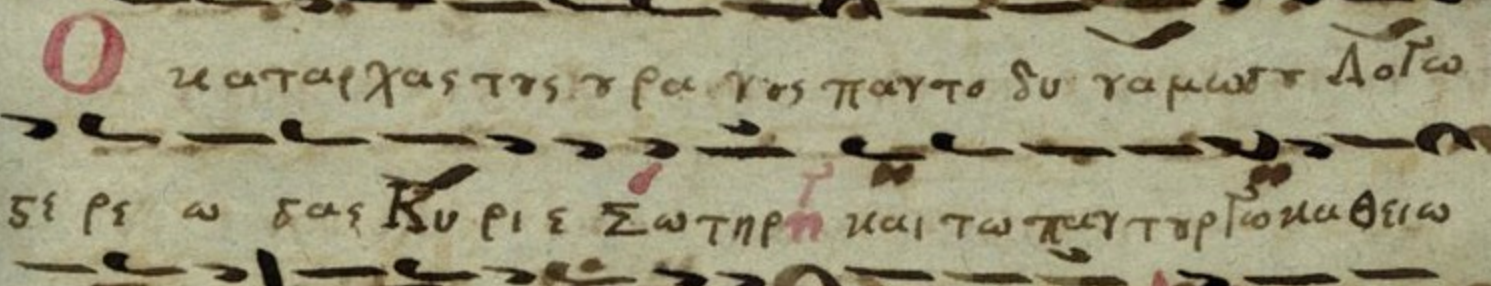 Ο καταρχας τους ουρα νους παντο δυ ναμωσου Λογω
στε ρε ω σας Κυ ρι ε Σωτηρ και τω παντουργω καθειω